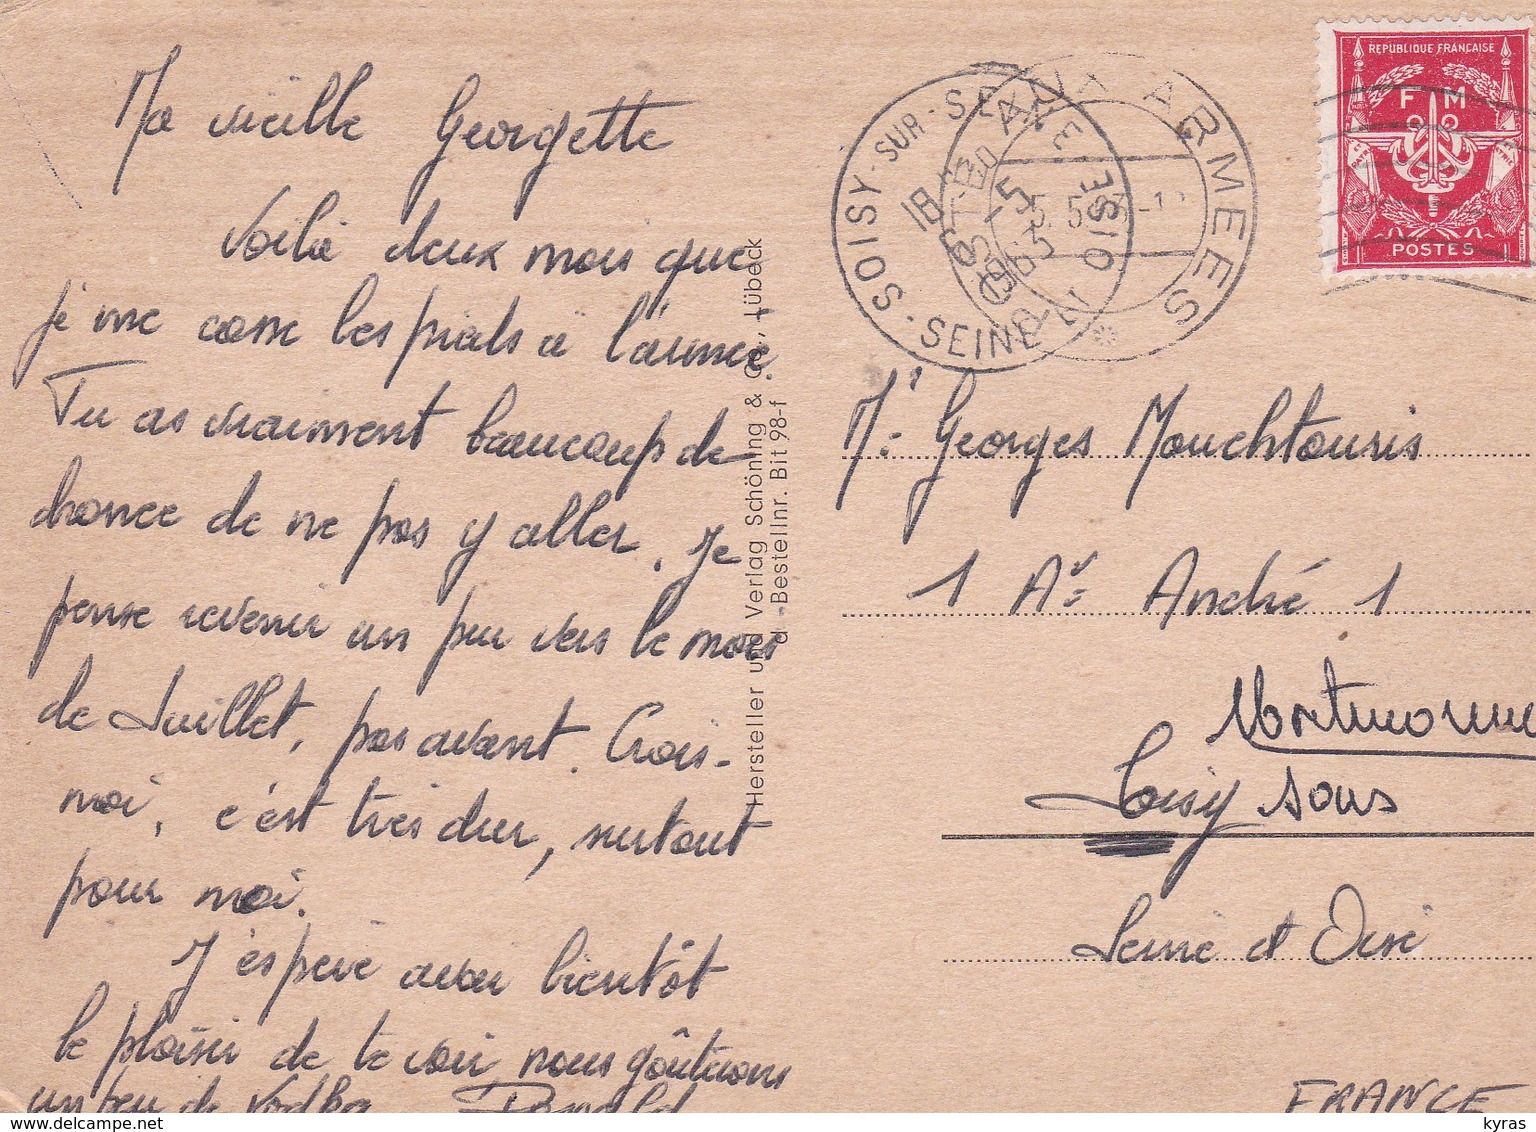 Ma vieille Georgette
Voilà deux mois que
je me casse les pieds à l'armée
Tu as vraiment beaucoup de
chance de ne pas y aller. Je
pense revenir un peu vers le mois
de Juillet, pas avant. Crois-
moi, c'est très dur, surtout
pour moi.
J'espère avoir bientôt
le plaisir de te voir, nous goûterons
un peu de Vodka
Hersteller und Verlag Schöning & Co., Lübeck
d -Bestellnr. Bit 98-f
SOISY-SUR-SEINE
18
-5
1963
SEINE-ET-OISE
POSTE AUX ARMEES
REPUBLIQUE FRANÇAISE
F M
POSTES
Mr Georges Mouchtouris
1 Av André 1
Montmorency
Soisy sous
Seine et Oise
FRANCE
delcampe.net
kyras